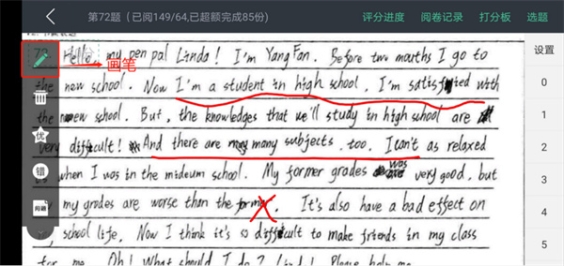 第72题（已阅149/64,已超额完成85份）
评分进度 阅卷记录 打分板 选题
72 Hello, my pen pal Linda! I'm Yang Fan. Before two mouths I go to
画笔
the new school. Now I'm a student in high school, I'm satisfied with
the new school. But, the knowledges that we'll study in high school are
very difficult! And there are many subjects too. I can't as relaxed
when I was in the mideum school. My former grades was very good, but
my grades are worse than the former. It's also have a bad effect on
school life. Now I think it's so difficult to make friends in my class
for me. Oh! What should I do? Please help me
优
错
问题
设置
0
1
2
3
4
5